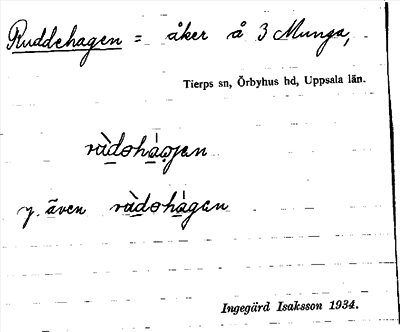 Ruddehagen = åker å 3 Munga,
Tierps sn, Örbyhus hd, Uppsala län.
rùdɘhàgen
y. även rùdɘhàgan
Ingegärd Isaksson 1934.